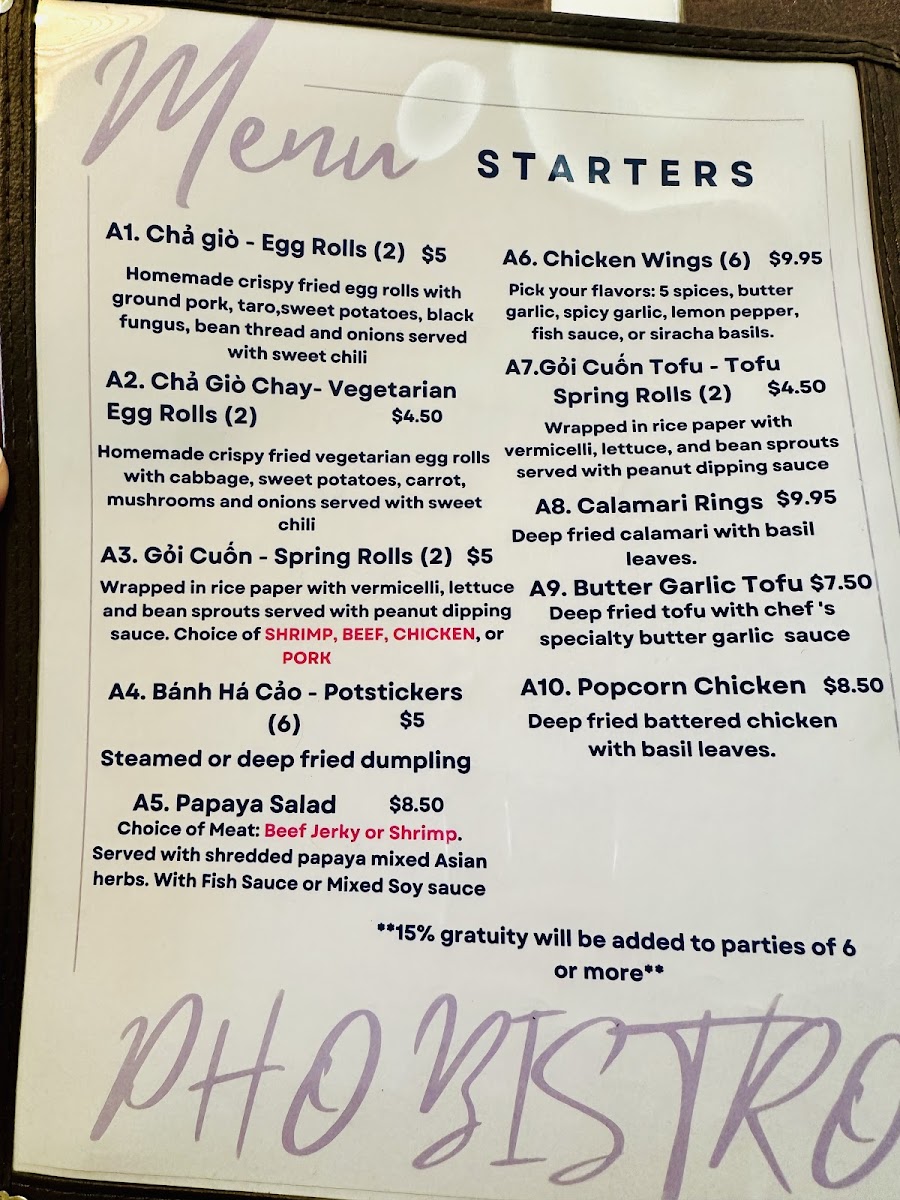 Menu
STARTERS
A1. Chả giò - Egg Rolls (2) $5
Homemade crispy fried egg rolls with
ground pork, taro,sweet potatoes, black
fungus, bean thread and onions served
with sweet chili
A2. Chả Giò Chay- Vegetarian
Egg Rolls (2) $4.50
Homemade crispy fried vegetarian egg rolls
with cabbage, sweet potatoes, carrot,
mushrooms and onions served with sweet
chili
A3. Gỏi Cuốn - Spring Rolls (2) $5
Wrapped in rice paper with vermicelli, lettuce
and bean sprouts served with peanut dipping
sauce. Choice of SHRIMP, BEEF, CHICKEN, or
PORK
A4. Bánh Há Cảo - Potstickers
(6) $5
Steamed or deep fried dumpling
A5. Papaya Salad $8.50
Choice of Meat: Beef Jerky or Shrimp.
Served with shredded papaya mixed Asian
herbs. With Fish Sauce or Mixed Soy sauce
A6. Chicken Wings (6) $9.95
Pick your flavors: 5 spices, butter
garlic, spicy garlic, lemon pepper,
fish sauce, or siracha basils.
A7.Gỏi Cuốn Tofu - Tofu
Spring Rolls (2) $4.50
Wrapped in rice paper with
vermicelli, lettuce, and bean sprouts
served with peanut dipping sauce
A8. Calamari Rings $9.95
Deep fried calamari with basil
leaves.
A9. Butter Garlic Tofu $7.50
Deep fried tofu with chef 's
specialty butter garlic sauce
A10. Popcorn Chicken $8.50
Deep fried battered chicken
with basil leaves.
**15% gratuity will be added to parties of 6
or more**
PHO BISTRO